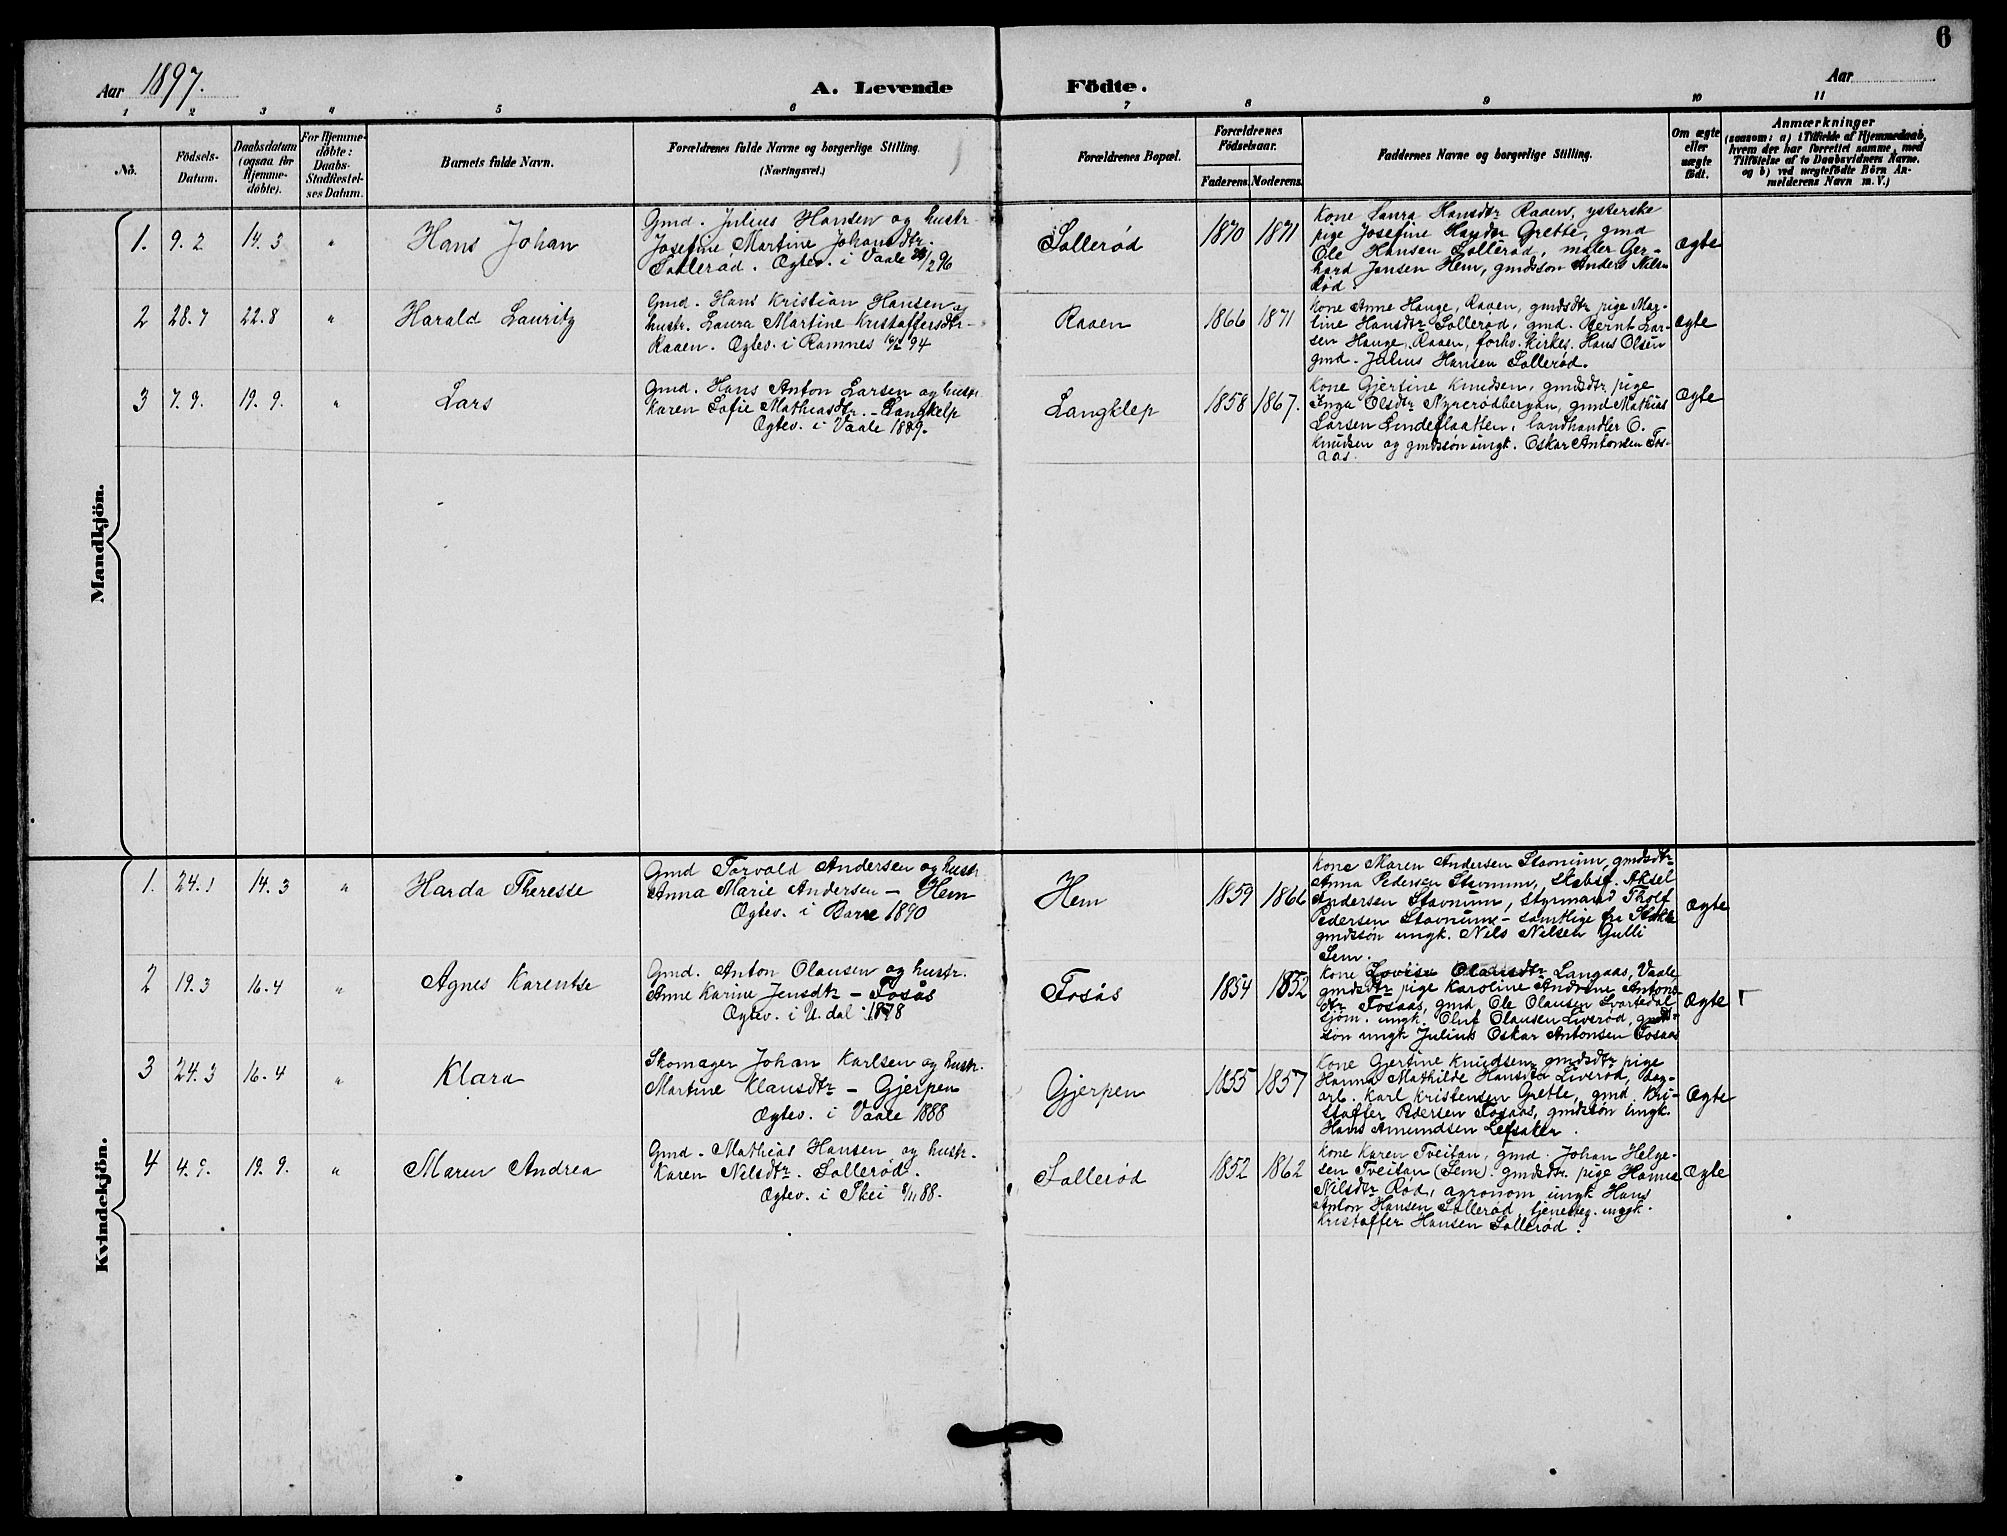 6
Aar 1897.
A. Levende Födte.
Aar
1 2 3 4 5 6 7 8 9 10 11
No.
Födsels-
Datum.
Daabsdatum
(ogsaa for
Hjemme-
döbte).
For Hjemme-
döbte:
Daabs-
Stadfæstel-
ses Datum.
Barnets fulde Navn.
Forældrenes fulde Navne og borgerlige Stilling.
(Næringsvei.)
Forældrenes Bopæl.
Forældrenes
Födselsaar.
Faderens. Moderens.
Faddernes Navne og borgerlige Stilling.
Om ægte
eller
uægte
födt.
Anmærkninger
(saasom: a) i Tilfælde af Hjemmedaab,
hvem der har forrettet samme, med
Tilföielse af to Daabsvidners Navne.
og b) ved uægtefödte Börn An-
melderens Navn m. V.)
Mandkjön.
1. 9. 2 14. 3 " Hans Johan
Gmd. Julius Hansen og hustr.
Josefine Martine Johansdtr.
Sollerød. Ægtev. i Vaale /2 96
Sollerød 1870 1871
Kone Laura Hansdtr Raaen, ysterske
pige Josefine Hansdtr Grette, gmd
Ole Hansen Sollerød, maler Ger-
hard Jensen Hem, gmdssøn Anders Nilsen
Rød.
Ægte
2 28. 7 22. 8 " Harald Lauritz
Gmd. Hans Kristian Hansen og
hustr. Laura Martine Kristoffersdtr-
Raaen. Ægtev. i Ramnes 94
Raaen 1866 1871
Kone Anne Hauge, Raaen, gmdsdtr pige Mar-
tine Hansdtr Sollerød, gmd. Bernt Lar-
sen Hauge, Raaen, forhv. kirkes. Hans Olsen
gmd. Julius Hansen Sollerød.
Ægte
3 7. 9. 19. 9. " Lars
Gmd. Hans Anton Larsen og hustr.
Karen Sofie Mathiasdtr. - Langklep
Ægtev. i Vaale 1889.
Langklep 1858 1867.
Kone Gjertine Knudsen, gmdsdtr pige
Inga Olsdtr Nyrerødbergan, gmd Mathias
Larsen Lindeflaatten, landhandler O.
Knudsen og gmdssøn ungk. Oskar Antonsen Fos-
aas.
Ægte
Kvindekjön.
1. 24. 1 14. 3 " Harda Theresse
Gmd Torvald Andersen og hustr
Anna Marie Andersen - Hem
Ægtev. i Borre 1890
Hem 1859 1866
Kone Maren Andersen Stavnum, gmdsdtr
Anna Pedersen Stavnum, skibsf. Aksel
Andersen Stavnum, styrmand Tholf
Pedersen Stavnum - samtlige fra Stokke
gmdssøn ungk. Nils Nilsen Gulli
Sem.
Ægte
2 19. 3 16. 4 " Agnes Karentse
Gmd. Anton Olausen og hustr.
Anne Karine Jensdtr - Fosås
Ægtev. i U.dal 1878
Fosås 1854 1852
Kone Lovise Olausdtr Langaas, Vaale
gmdsdtr pige Karoline Andrine Antons-
dtr Fosaas, gmd Ole Olausen Svartedal
sjøm. ungk. Oluf Olausen Liverød, gmds-
søn ungk Julius Oskar Antonsen Fosaas
Ægte
3 24. 3 16. 4 " Klara
Skomager Johan Karlsen og hustr.
Martine Klausdtr - Gjerpen
Ægtev. i Vaale 1888
Gjerpen 1855 1857
Kone Gjertine Knudsen, gmdsdtr pige
Hanna Mathilde Hansdtr Liverød, Dag-
arb. Karl Kristensen Grette, gmd. Kri-
stoffer Pedersen Fosaas, gmdssøn ungk.
Hans Amundsen Lefsaker.
Ægte
4 4. 9. 19. 9. " Maren Andrea
Gmd. Mathias Hansen og hustr.
Karen Nilsdtr. Sollerød.
Ægtev. i Skei 8/11 88.
Sollerød 1852 1862
Kone Karen Tveitan, gmd. Johan Helge-
sen Tveitan (Sem). gmdsdtr. pige Hanna
Nilsdtr Rød, agronom ungk Hans
Anton Hansen Sollerød, tjenesteg. ungk.
Kristoffer Hansen Sollerød.
Ægte